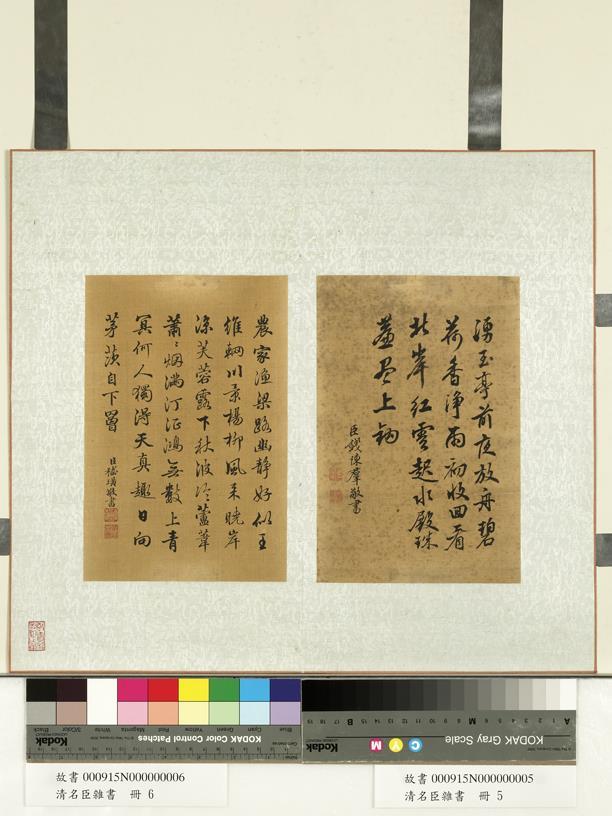 湧玉亭前夜放舟碧
荷香淨雨初收回看
北岸紅雲起水殿珠
簾尽上鉤
臣錢陳羣敬書
農家漁梁路幽靜好似王
維輞川景楊柳風来曉岸
涼芙蓉露下秋波冷蘆葦
蕭〻烟滿汀征鴻無數上青
冥何人獨得天真趣日向
茅茨自下罾
臣嵇璜敬書
KODAK Color Control Patches
Blue Cyan Green Yellow Red Magenta White 3/Color Black
Kodak
KODAK Gray Scale
C Y M
Kodak
A 1 2 3 4 5 6 M 8 9 10 11 12 13 14 15 B 17 18 19
故書 000915N000000006
清名臣雜書 冊 6
故書 000915N000000005
清名臣雜書 冊 5